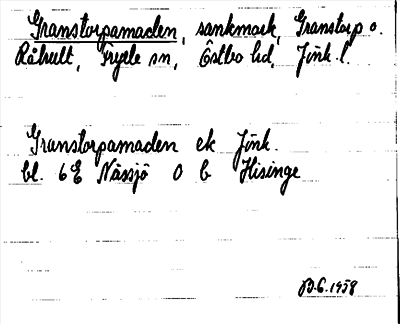 Granstorpamaden, sankmark, Granstorp o.
Råhult, Fryele sn, Östbo hd, Jönk. l.
Granstorpamaden ek Jönk.
bl. 6E Nässjö 0 b Hisinge
B.G. 1958